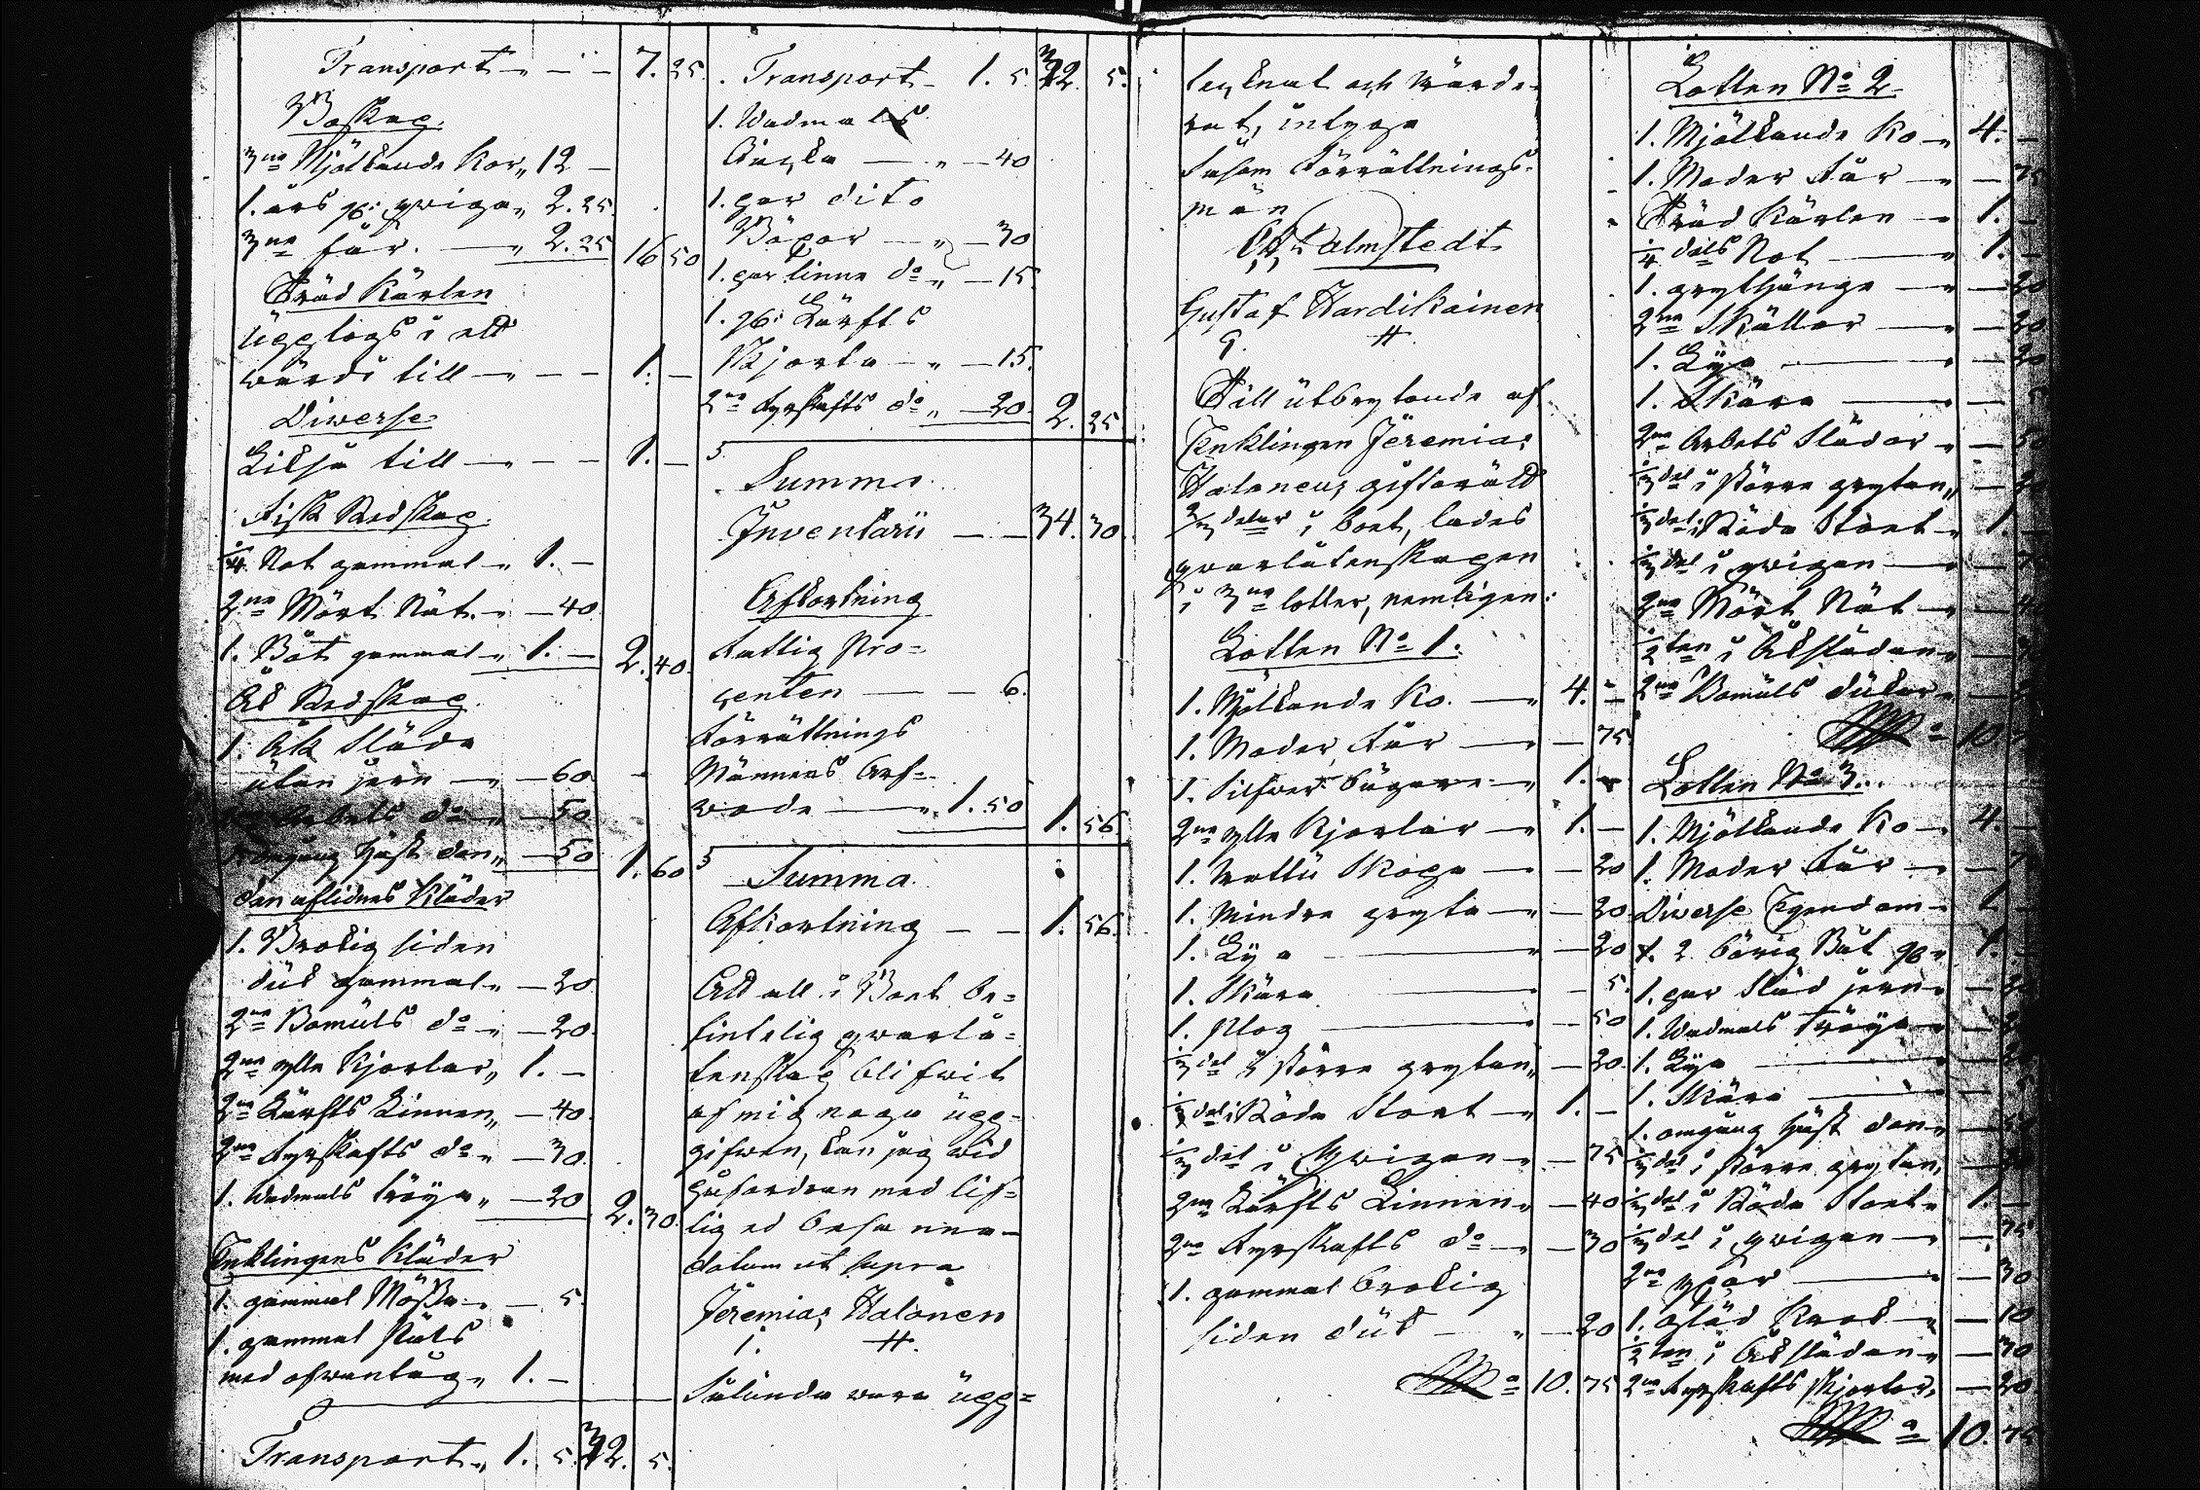 Transport „ — " — 7. 25.
Boskap.
3ne Mjölkande Kor „ 12 —
1. års g: qwiga „ 2. 25.
3ne får. — „ 2. 25 16 50
Träd Kärlen
Upptogs i ett
wärde till — „ — — 1. —
Diwerse
Likså till — „ — — 1. —
Fisk Redskap.
1/4 Not gammal „ 1. —
2ne Mört Nät „ — 40.
1. Båt gammal „ 1. — 2. 40.
Åk Redskap.
1. Åk Släda
utan jern — „ — 60
Arbets do „ — 50
omgång häst don „ — 50 1. 60
Den aflidnes Kläder
1. Brokig siden
duk gammal „ — 20
2ne Bomuls do „ — 20.
2ne ylle Kjortlar „ 1. —
2ne Lärfts Linnen „ — 40.
2ne fyrskafts do „ — 30.
1. Wadmals tröya „ — 20 2. 30.
Enklingens Kläder
1. gammal Mössa „ — 5.
1. gammal päls
med ofwantåg „ 1. —
Transport „ 1. 5. 32. 5.
Transport — 1. 5. 32. 5.
1. Wadmals
— „ — 40
1. par dito
Böxor — „ — 30
1. par linne do „ — 15.
1. g: Lärfts
Skjorta — „ — 15.
2ne fyrskafts do „ — 20. 2. 25.
Summa
Inventarii — — 34. 30.
Afkortning
Fattig Pro=
centen — — 6.
Förrättnings
Männens Arf=
wode — „ 1. 50 1. 56
Summa
Afkortning — — 1. 56.
Att all i Boet be=
fintelig qwarlå=
tenskap blifwit
af mig noga upp=
gifwen, kan jag wid
påfordran med lif=
lig ed besanna —
datum ut supra
Jeremias Halonen
I. H.
Sålunda wara upp=
tecknat och wärde=
rat, intyga
Såsom Förrättnings=
män
Palmstedt
Gustaf Hardikainen
G. H
Till utbrytande af
Enklingen Jeremias
Halonens giftorätt
2/3 delar i boet, lades
qwarlåtenskapen
i 3ne lotter, nemligen:
Lotten No 1.
1. Mjölkande Ko. — „ 4. —
1. Moder Får — „ — 75
1. Silfwer bägare — „ 1. —
2ne ylle Kjortlar — „ 1. —
1. Wattu Skopa — „ — 20
1. Mindre gryta — „ — 20
1. Lya — „ — 20
1. Skära — „ — 5.
1. Plog — „ — 50
1/3 del i större grytan „ — 20.
1/3 del i Röda Stoet — „ 1. —
1/3 del i Qwigan „ — 75
2ne Lärfts Linnen „ — 40
2ne Fyrskafts do — „ — 30
1. gammal brokig
siden duk — „ — 20
10. 75
Lotten No 2
1. Mjölkande Ko — „ 4. —
1. Moder Får — „ — 75
Träd Kärlen — „ 1. —
1/4 dels Not — „ 1. —
1. grythänge — „ — 20
2ne Skällor — „ — 20
1. Lya — „ — 20
1. Skära — „ — 5
2ne Arbets Slädor „ — 50
1/3 del i större grytan „ — 20
1/3 del i Röda Stoet „ 1. —
1/3 del i qwigan — „ — 75
2ne Mört Nät — „ — 40
1/2 ten i Åkslädan „ — 30
2ne Bomuls dukar „ —
10.
Lotten No 3.
1. Mjölkande Ko — „ 4. —
1. Moder Får — „ — 75
Diverse Egendom — „ 1 —
1. 2 bårig Båt g: „ 1. —
1. par Släd jern „ —
1. Wadmals tröya „ — 20
1. Lya — „ — 20
1. Skära — „ — 5
1. omgång häst don „ — 50
1/3 del i större grytan „ — 20
1/3 del i Röda Stoet „ 1. —
1/3 del i qwigan — „ — 75
2ne yxor — „ — 30
1. Krok — „ — 10
1/2 ten i Åkslädan „ — 30
2ne fyrskafts Skjortor „ — 20
10. 75